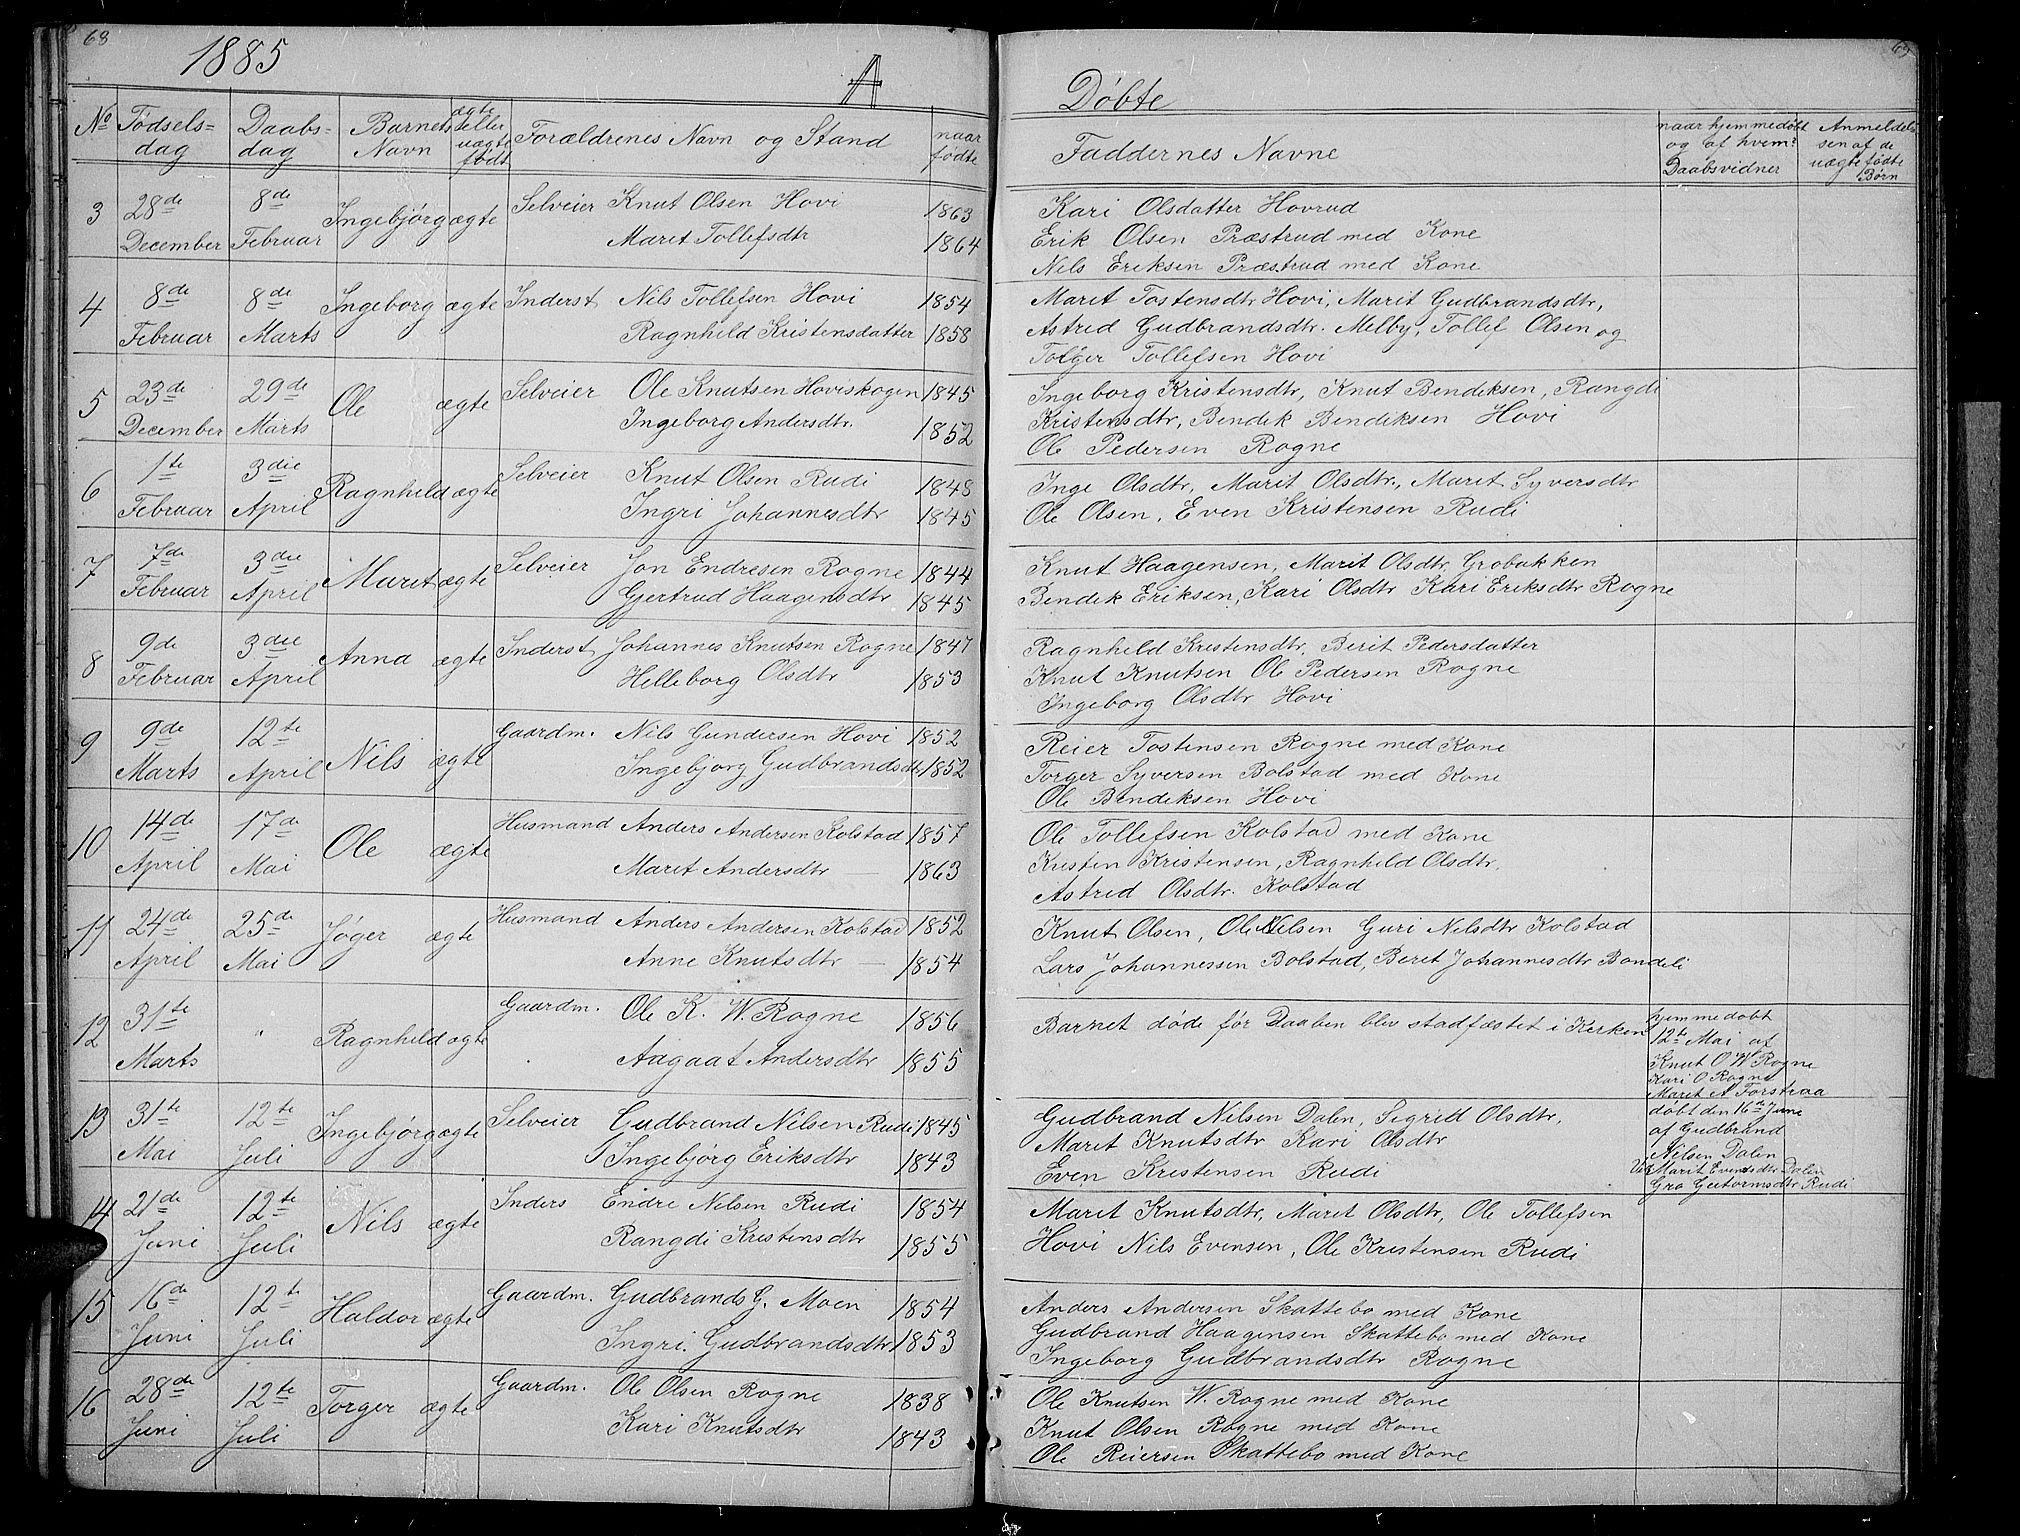 68
1885
A
No Fødsels= dag Daabs= dag Barnets Navn ægte eller uægte født Forældrenes Navn og Stand naar fødte
3 28de 8de Ingebjørg ægte Selveier Knut Olsen Hovi 1863
December Februar Marit Tollefsdtr 1864
4 8de 8de Ingeborg ægte Inderst Nils Tollefsen Hovi 1854
Februar Marts Ragnhild Kristensdatter 1858
5 23de 29de Ole ægte Selveier Ole Knutsen Hoviskogen 1845
December Marts Ingeborg Andersdtr. 1852
6 1te 3die Ragnhild ægte Selveier Knut Olsen Rudi 1848
Februar April Ingri Johannesdtr 1845
7 7de 3die Marit ægte Selveier Jon Endresen Rogne 1844
Februar April Gjertrud Haagensdtr 1845
8 9de 3die Anna ægte Inderst Johannes Knutsen Rogne 1847
Februar April Helleborg Olsdtr 1853
9 9de 12te Nils ægte Gaardm. Nils Gundersen Hovi 1852
Marts April Ingebjorg Gudbrandsdtr 1852
10 14de 17de Ole ægte Husmand Anders Andersen Kolstad 1857
April Mai Marit Andersdtr — 1863
11 24de 25de Jøger ægte Husmand Anders Andersen Kolstad 1852
April Mai Anne Knutsdtr — 1854
12 31te " Ragnhild ægte Gaardm. Ole K. W. Rogne 1856
Marts Aagaat Andersdtr 1855
13 31te 12te Ingebjørg ægte Selveier Gudbrand Nilsen Rudi 1845
Mai Juli Ingebjørg Eriksdtr 1843
14 21de 12te Nils ægte Inders Endre Nilsen Rudi 1854
Juni Juli Rangdi Kristensdtr 1855
15 16de 12te Haldor ægte Gaardm. Gudbrands G. Moen 1854
Juni Juli Ingri. Gudbrandsdtr 1853
16 28de 12te Torger ægte Gaardm. Ole Olsen Rogne 1838
Juni Juli Kari Knutsdtr 1843
69
Døbte
Faddernes Navne naar hjemmedøbt og af hvem? Daabsvidner Anmeldel sen af de uægte fødte Børn
Kari Olsdatter Hovrud
Erik Olsen Præstrud med Kone
Nils Eriksen Præstrud med Kone
Marit Tostensdtr Hovi, Marit Gudbrandsdtr,
Astrid Gudbrandsdtr. Melby, Tollef Olsen og
Tolger Tollefsen Hovi
Ingeborg Kristensdtr, Knut Bendiksen, Rangdi
Kristensdtr, Bendik Bendiksen Hovi
Ole Pedersen Rogne
Inge Olsdtr, Marit Olsdtr., Marit Syversdtr
Ole Olsen, Even Kristensen Rudi
Knut Haagensen, Marit Olsdtr, Grobakken
Bendik Eriksen, Kari Olsdtr Kari Eriksdtr Rogne
Ragnhild Kristensdtr, Berit Pedersdatter
Knut Knutsen Ole Pedersen Rogne
Ingeborg Olsdtr Hovi
Reier Tostensen Rogne med Kone
Torger Syversen Bolstad med Kone
Ole Bendiksen Hovi
Ole Tollefsen Kolstad med Kone
Kristen Kristensen, Ragnhild Olsdtr,
Astrid Olsdtr. Kolstad
Knut Olsen, Ole Nilsen Guri Nilsdtr Kolstad
Lars Johannessen Bolstad, Beret Johannesdtr Bondeli
Barnet døde før Daaben blev stadfæstet i Kirken hjemmedøbt
12te Mai af
Knut O W Rogne
Kari O Rogne
Marit A Forstraa
Gudbrand Nilsen Dalen, Sigrid Olsdtr, døbt den 16de June
Marit Knutsdtr Kari Olsdtr af Gudbrand
Even Kristensen Rudi Nilsen Dalen
Marit Evensdtr Dalen
Gro Gutormsdtr Rudi
Marit Knutsdtr, Marit Olsdtr, Ole Tollefsen
Hovi Nils Evensen, Ole Kristensen Rudi
Anders Andersen Skattebo med Kone
Gudbrand Haagensen Skattebo med Kone
Ingeborg Gudbrandsdtr Rogne
Ole Knutsen W. Rogne med Kone
Knut Olsen Rogne med Kone
Ole Reiersen Skattebo med Kone